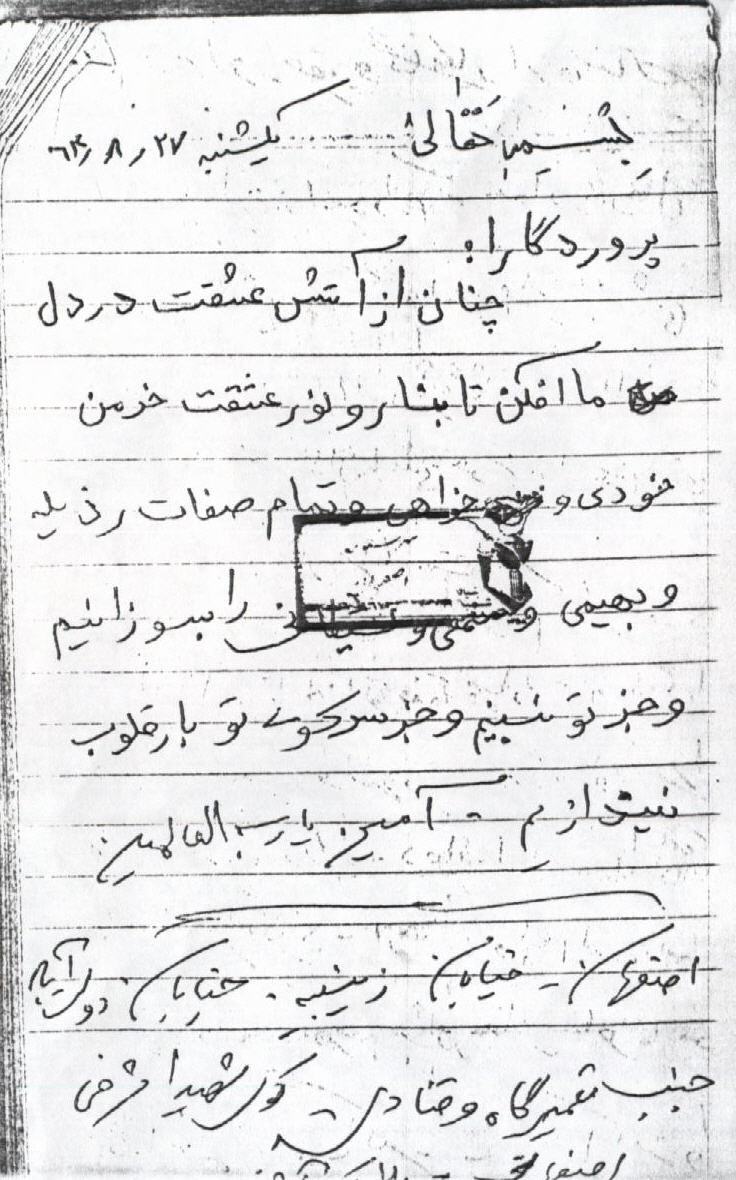 بسمه تعالی ...... یکشنبه ۶۴٫۸٫۲۷
پروردگارا:
چنان از آتش عشقت در دل
ما افکن تا بشار و نور عشقت خرمن
خودی و خواهی و تمام صفات رذیله
و بهیمی و و را بسوزانیم
و جز تو نبینیم و جز سر کوی تو بار قلوب
نیندازیم - آمین یا رب العالمین
اصفهان - خیابان زینبیه. خیابان
جنب تعمیرگاه و قنادی - کوی شهید اشرفی